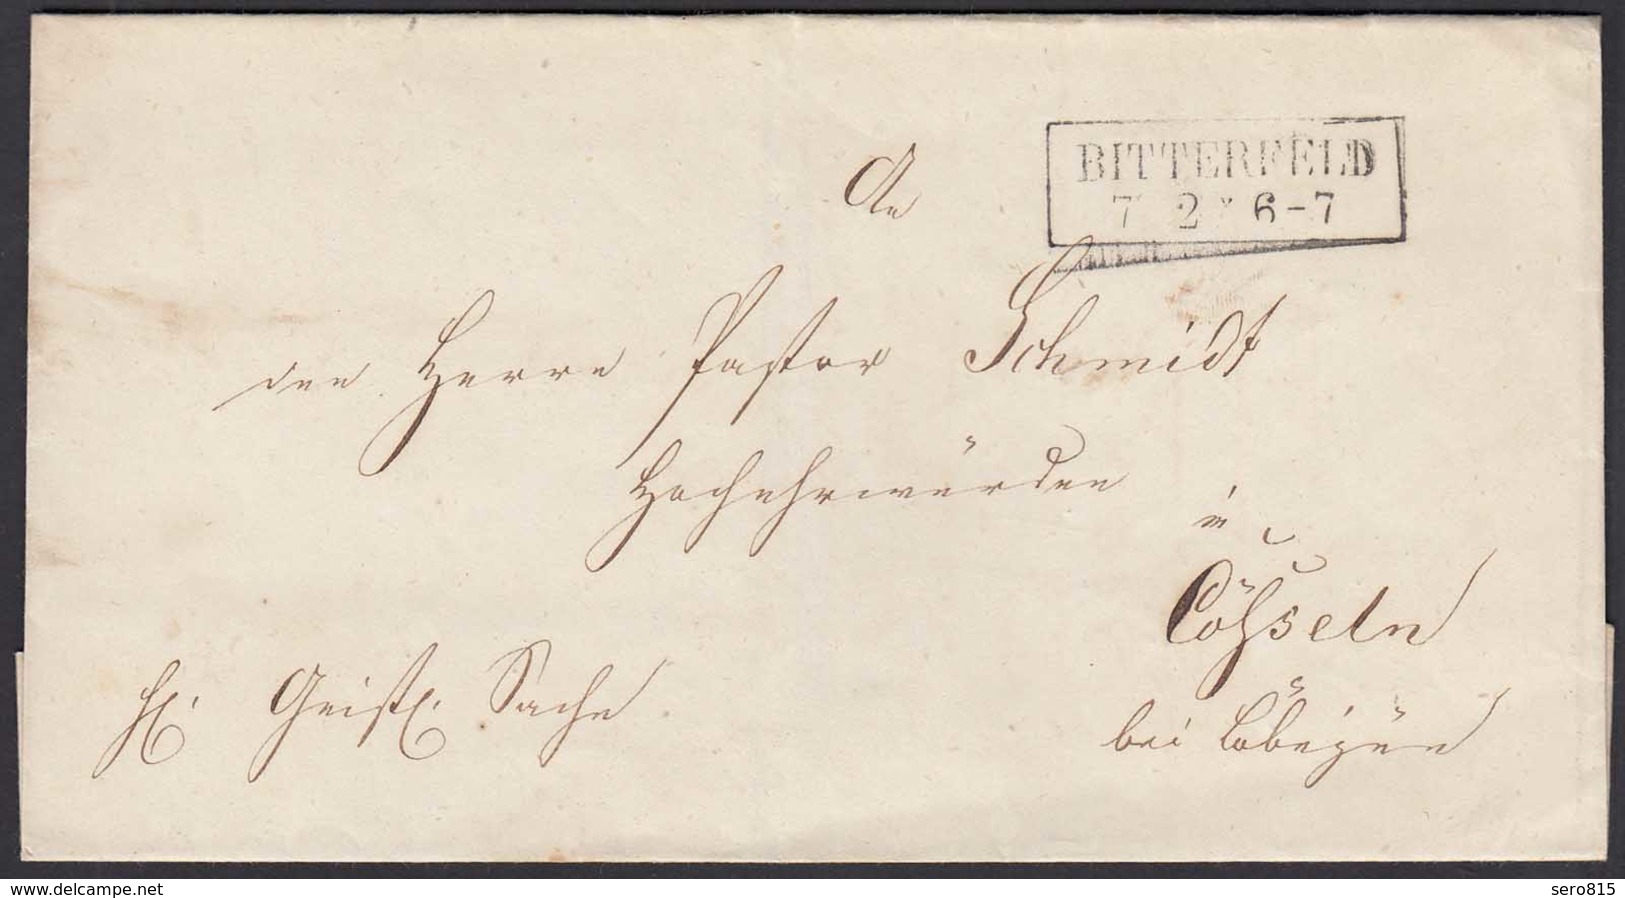 BITTERFELD
7 2 * 6-7
An
den Herrn Pastor Schmidt
Hochehrwürden
in
Cösseln
bei Löbejün
H. Geistl. Sache
www.delcampe.net
sero815